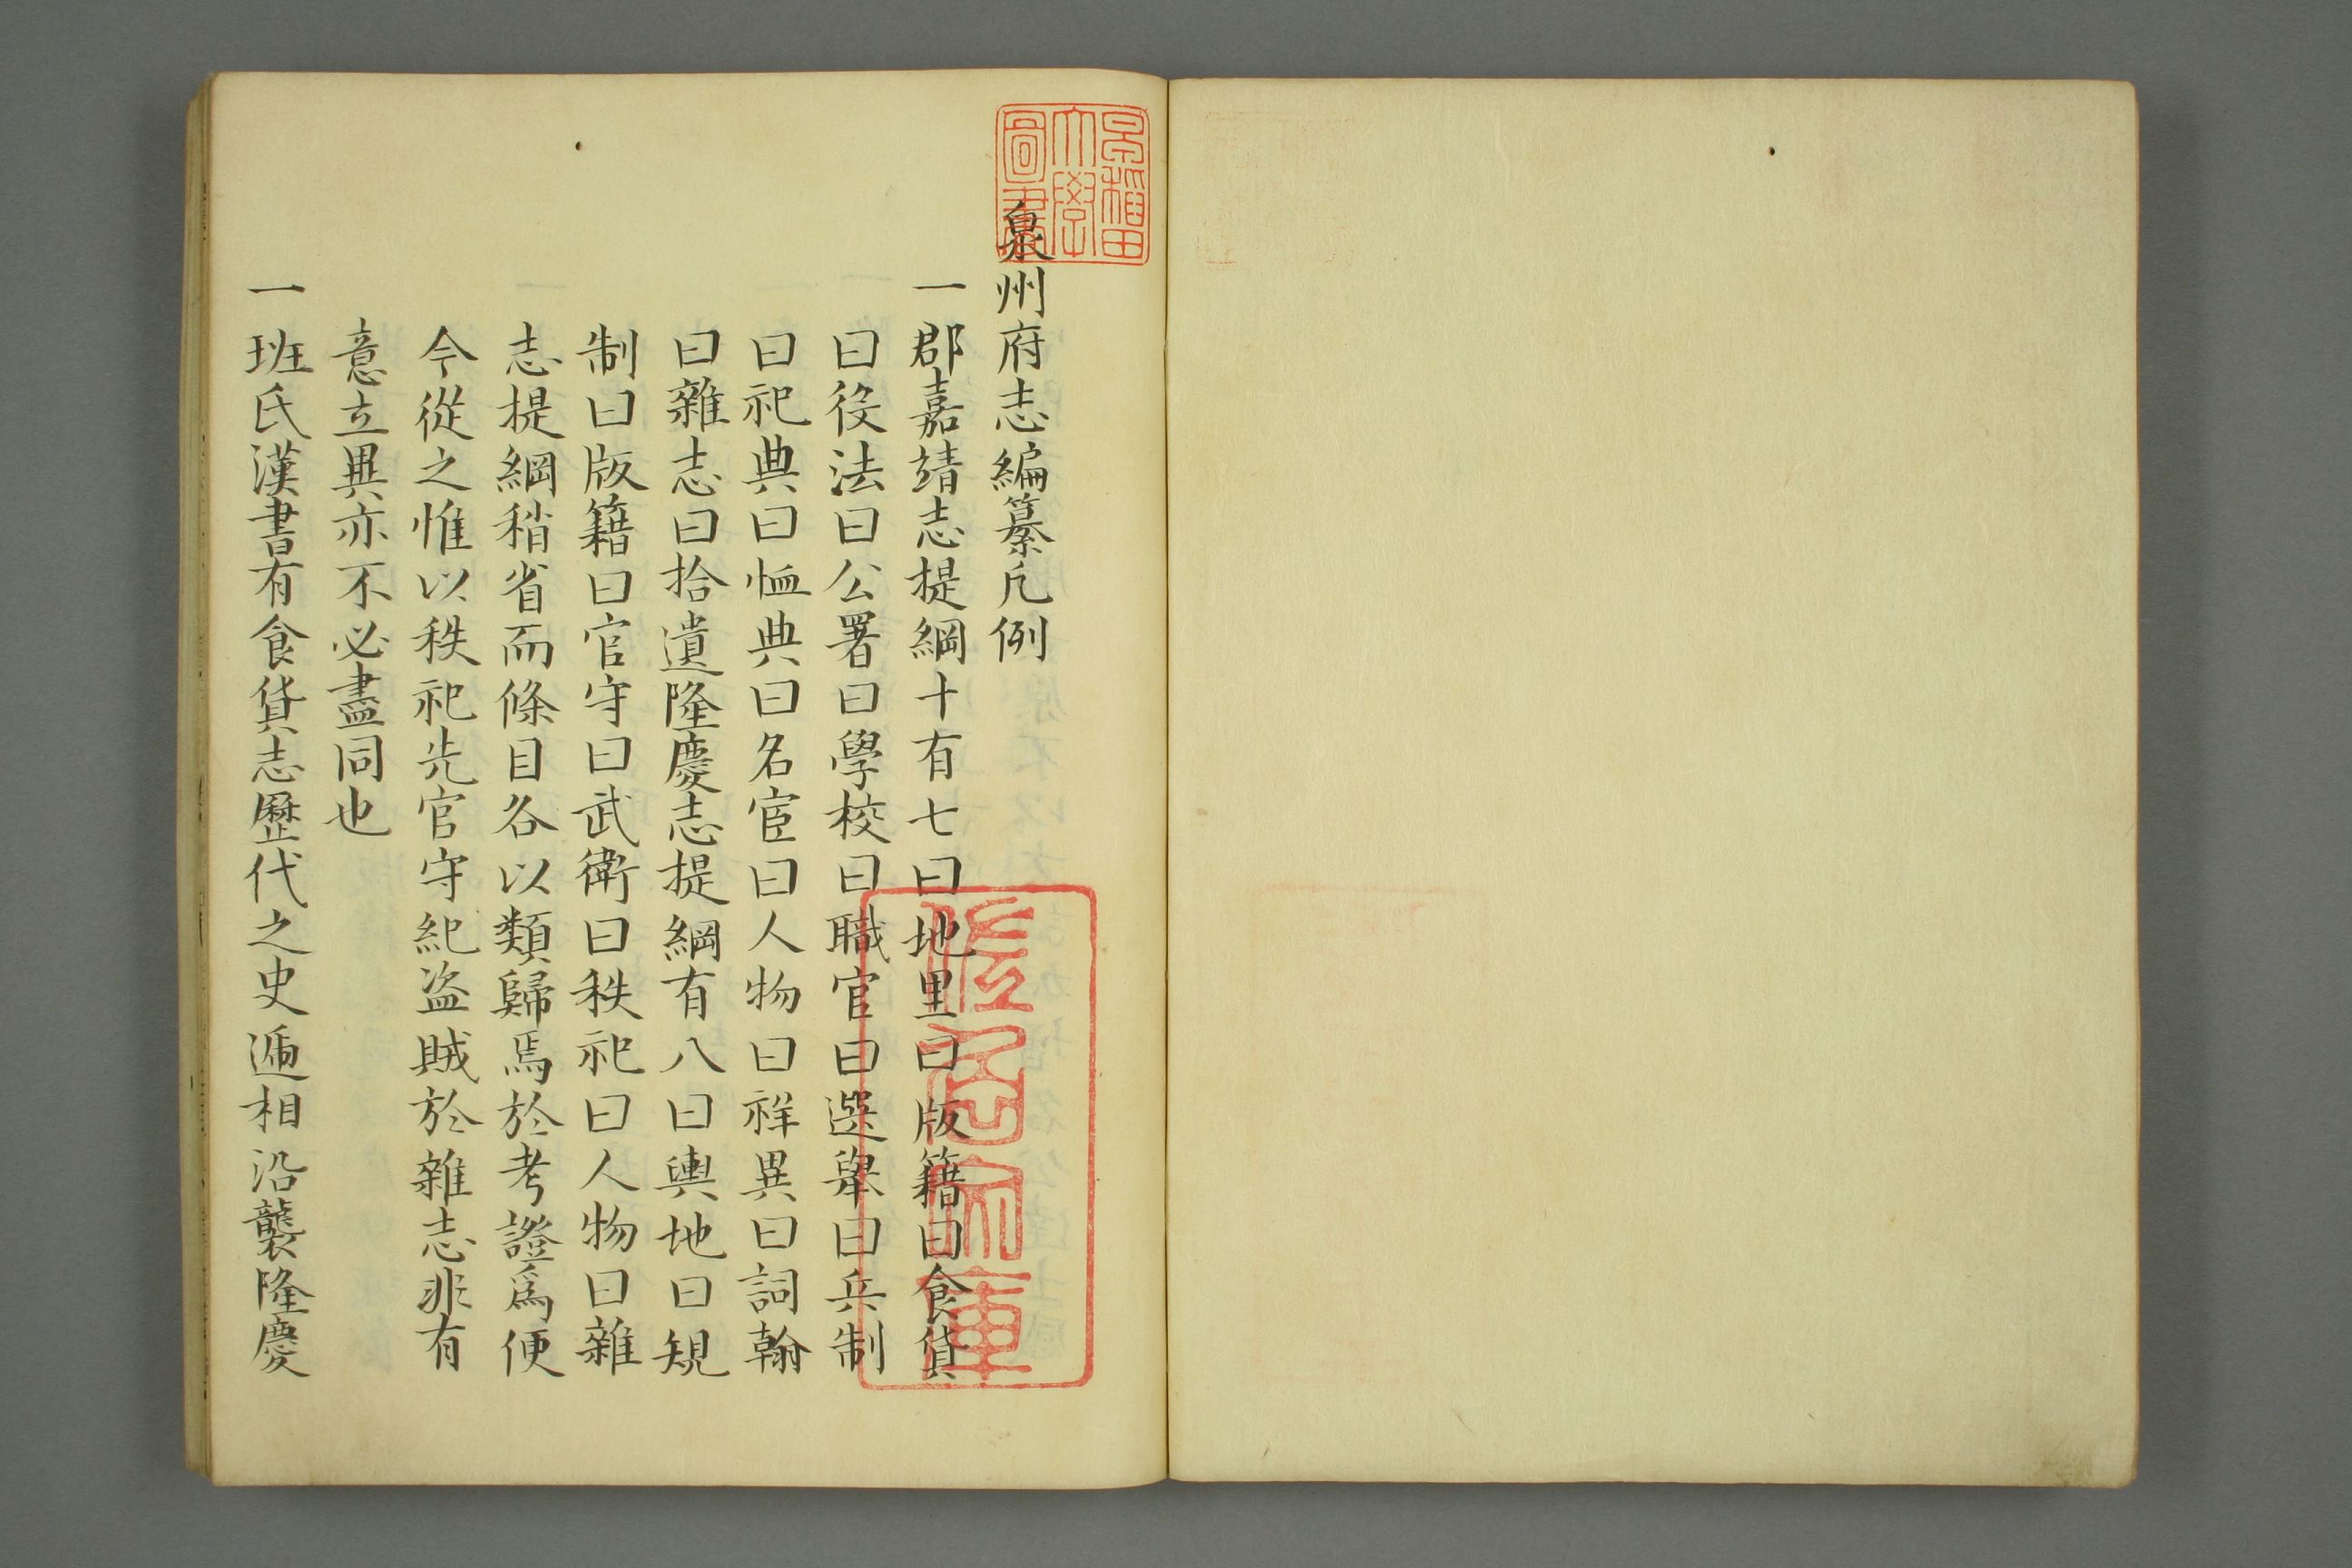 泉州府志編纂凡例
一郡嘉靖志提綱十有七曰地里曰版籍曰食貨
曰役法曰公署曰學校曰職官曰選舉曰兵制
曰祀典曰恤典曰名宦曰人物曰祥異曰詞翰
曰雜志曰拾遺隆慶志提綱有八曰輿地曰規
制曰版籍曰官守曰武衛曰秩祀曰人物曰雜
志提綱稍省而條目各以類歸焉於考證爲便
今從之惟以秩祀先官守紀盗賊於雜志非有
意立異亦不必盡同也
一班氏漢書有食貨志歷代之史遞相沿襲隆慶
早稲田
大學
圖書